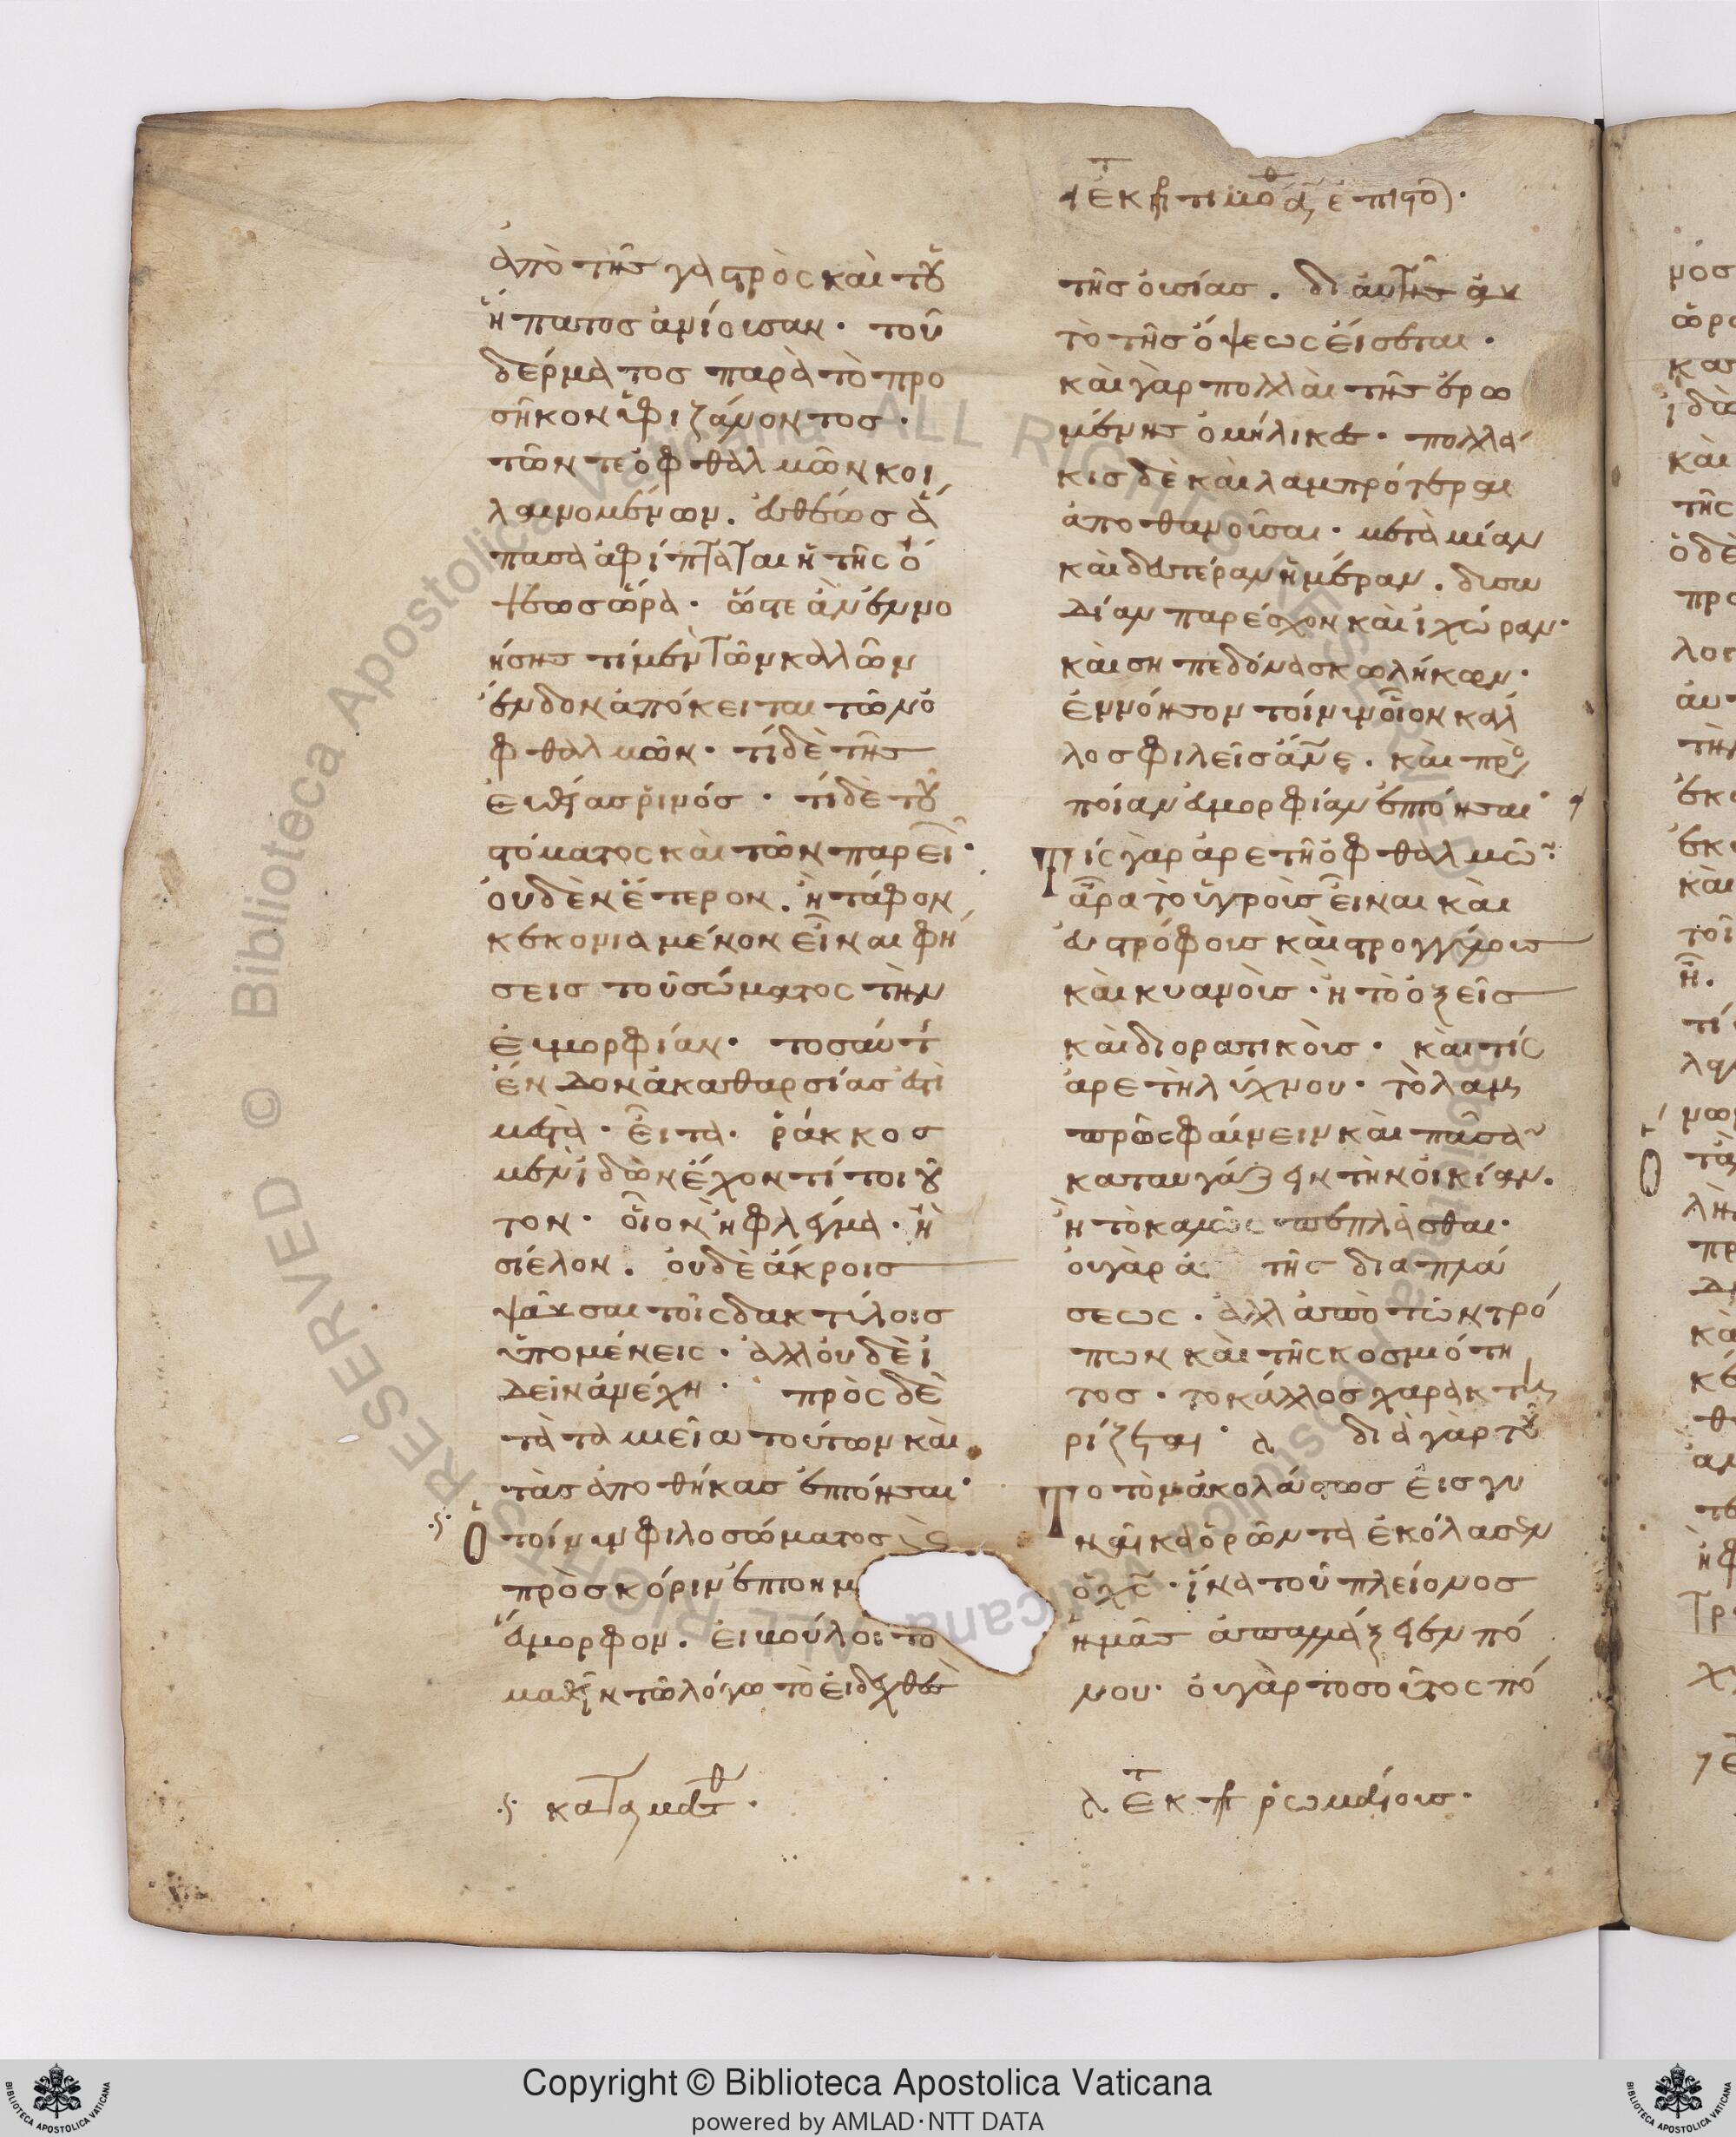 ἀπὸ τῆς γαστρὸς καὶ τοῦ
ἥπατος ἀνιοῦσαν· τοῦ
δέρματος παρὰ τὸ προ
σῆκον ὑφιζάνοντος·
τῶν τε ὀφθαλμῶν κοι
λαινομένων. εὐθέως ἅ
πασα ἀφίπταται ἡ τῆς ὄ
ψεως ὥρα· ὥστε ἂν ἐννο
ήσης τί μὲν τῶν καλῶν
ἔνδον ἀπόκειται τῶν ὀ
φθαλμῶν· τί δὲ τῆς
εὐθείας ῥινός· τί δὲ τοῦ
στόματος καὶ τῶν παρει·
οὐδὲν ἕτερον. ἢ τάφον
κεκονιαμένον εἶναι φή
σεις τοῦ σώματος τὴν
εὐμορφίαν· τοσαύτ
ἔνδον ἀκαθαρσίας ἐστὶ
μεστὰ· εἶτα· ῥάκκος
μὲν ἰδὼν ἔχον τί τοιοῦ
τον· οἷον ἢ φλέγμα· ἢ
σίελον. οὐδὲ ἄκροις
ψαῦσαι τοῖς δακτύλοις
ὑπομένεις· ἀλλ οὐδὲ ἰ
δεῖν ἀνέχη· πρὸς δὲ
τὰ ταμεῖα τούτων καὶ
τὰς ἀποθήκας ἐπτόησαι·
ς Ὁ τοίνυν φιλοσώματος
πρὸς κόριν ἐπτοημ
ἄμορφον. εἰ βούλοιτο
μαθεῖν τῶ λόγω τὸ εἰδεχθὲς
ς κατα ματθ·
ἐκ τ τιμοθ α ἐπιστο·
τῆς οὐσίας. δι αὐτῆς αὐ
τὸ τῆς ὄψεως εἴσεται·
καὶ γὰρ πολλαὶ τῆς ἐρω
μένης ὁμήλικες· πολλά
κις δὲ καὶ λαμπρότεραι
ἀποθανοῦσαι· μετὰ μίαν
καὶ δευτέραν ἡμέραν. δυσω
δίαν παρέσχον καὶ ἰχώραν·
καὶ σηπεδόνα σκωλήκων·
ἐννόησον τοίνυν οἷον κάλ
λος φιλεῖς ἄνε. καὶ πρὸ
ποίαν εὐμορφίαν ἐπτόησαι·
Τίς γὰρ ἀρετὴ ὀφθαλμῶ·
ἆρα τὸ ὑγροῖς εἶναι καὶ
εὐστρόφοις καὶ στρογγύλοις
καὶ κυανοῖς· ἢ τὸ ὀξεῖς
καὶ διορατικοῖς· καὶ τίς
ἀρετὴ λύχνου· τὸ λαμ
πρῶς φαίνειν καὶ πᾶσα
καταυγάζειν τὴν οἰκίαν.
ἢ τὸ καλῶς πεπλάσθαι·
οὐ γὰρ ἀ τῆς διαπλά
σεως. ἀλλ ἀπὸ τῶν τρό
πων καὶ τῆς κοσμιότη
τος· το κάλλος χαρακτη
ρίζεται· λ διὰ γὰρ τοῦ
Το τὸν ἀκολάστως εἰς γυ
ναῖκα ὁρῶντα ἐκόλασεν
ὁ χς· ἵνα τοῦ πλείονος
ἡμᾶς ἀπαλλάξειεν πό
νου· οὐ γὰρ τοσοῦτος πό
λ ἐκ τ ῥωμαίοις·
Copyright © Biblioteca Apostolica Vaticana
powered by AMLAD·NTT DATA